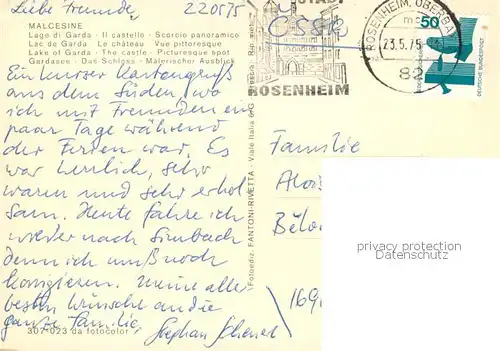 Liebe Freunde, 220575
MALCESINE
Lago di Garda - Il castello - Scorcio panoramico
Lac de Garda - Le château - Vue pittoresque
Lake of Garda - The castle - Picturesque spot
Gardasee - Das Schloss - Malerischer Ausblick
Ein kurzer Kartengruß
aus dem Süden, wo
ich mit Freunden ein
paar Tage während
der Ferien war. Es
war herrlich, sehr
warm und sehr erhol
sam. Heute fahre ich
wieder nach Simbach
denn ich muß noch
korrigieren. Meine aller
besten Wünsche an die
ganze Familie,
Stephan
307-023 da fotocolor
Fotoediz. FANTONI-RIVETTA - Viale Italia
STADT
ROSENHEIM
ČSSR
ROSENHEIM, OBERBAY
mc
23.5.75
82
50
DEUTSCHE BUNDESPOST
Familie
privacy protection
watermark